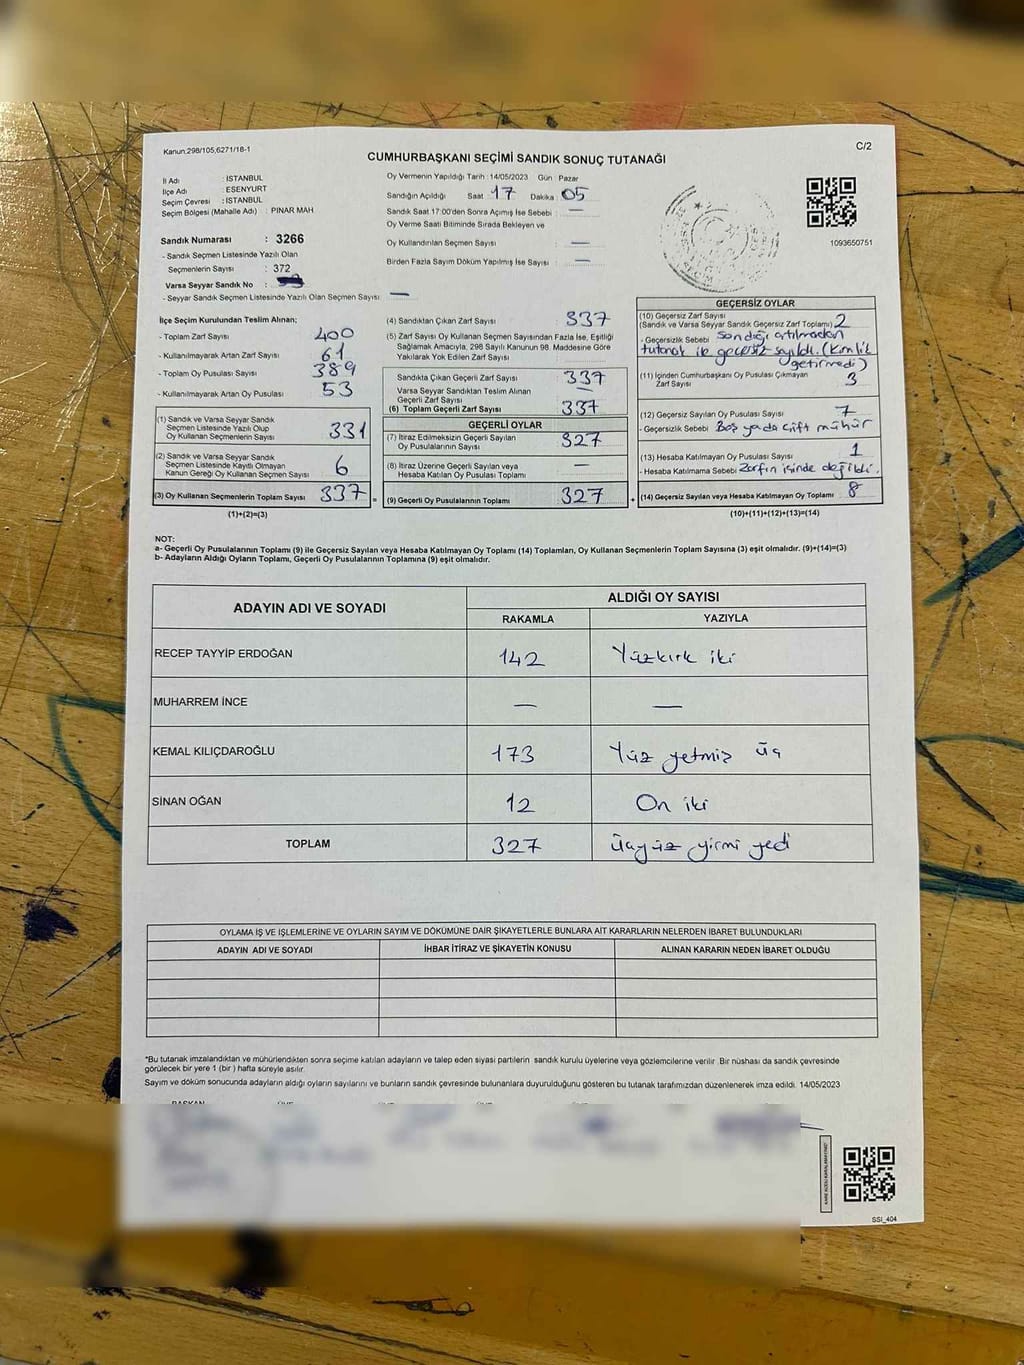 Kanun.298/105,6271/18-1
C/2
CUMHURBAŞKANI SEÇİMİ SANDIK SONUÇ TUTANAĞI
İl Adı : İSTANBUL
İlçe Adı : ESENYURT
Seçim Çevresi : İSTANBUL
Seçim Bölgesi (Mahalle Adı) : PINAR MAH
Sandık Numarası : 3266
- Sandık Seçmen Listesinde Yazılı Olan
Seçmenlerin Sayısı : 372
Varsa Seyyar Sandık No :
- Seyyar Sandık Seçmen Listesinde Yazılı Olan Seçmen Sayısı: —
Oy Vermenin Yapıldığı Tarih : 14/05/2023 Gün : Pazar
Sandığın Açıldığı Saat : 17 Dakika : 05
Sandık Saat 17:00'den Sonra Açımış İse Sebebi : —
Oy Verme Saati Bitiminde Sırada Bekleyen ve
Oy Kullandırılan Seçmen Sayısı : —
Birden Fazla Sayım Döküm Yapılmış İse Sayısı : —
1093650751
İlçe Seçim Kurulundan Teslim Alınan;
- Toplam Zarf Sayısı : 400
- Kullanılmayarak Artan Zarf Sayısı : 61
- Toplam Oy Pusulası Sayısı : 389
- Kullanılmayarak Artan Oy Pusulası : 53
(1) Sandık ve Varsa Seyyar Sandık
Seçmen Listesinde Yazılı Olup
Oy Kullanan Seçmenlerin Sayısı : 331
(2) Sandık ve Varsa Seyyar Sandık
Seçmen Listesinde Kayıtlı Olmayan
Kanun Gereği Oy Kullanan Seçmen Sayısı : 6
(3) Oy Kullanan Seçmenlerin Toplam Sayısı : 337 =
(1)+(2)=(3)
(4) Sandıktan Çıkan Zarf Sayısı : 337
(5) Zarf Sayısı Oy Kullanan Seçmen Sayısından Fazla İse, Eşitliği
Sağlamak Amacıyla, 298 Sayılı Kanunun 98. Maddesine Göre
Yakılarak Yok Edilen Zarf Sayısı
Sandıkta Çıkan Geçerli Zarf Sayısı : 337
Varsa Seyyar Sandıktan Teslim Alınan
Geçerli Zarf Sayısı : —
(6) Toplam Geçerli Zarf Sayısı : 337
GEÇERLİ OYLAR
(7) İtiraz Edilmeksizin Geçerli Sayılan
Oy Pusulalarının Sayısı : 327
(8) İtiraz Üzerine Geçerli Sayılan veya
Hesaba Katılan Oy Pusulası Toplamı : —
(9) Geçerli Oy Pusulalarının Toplamı : 327 +
GEÇERSİZ OYLAR
(10) Geçersiz Zarf Sayısı
(Sandık ve Varsa Seyyar Sandık Geçersiz Zarf Toplamı) 2
- Geçersizlik Sebebi : sandığı atılmadan
tutanak ile geçersiz sayıldı. (kimlik
getirmedi)
(11) İçinden Cumhurbaşkanı Oy Pusulası Çıkmayan
Zarf Sayısı : 3
(12) Geçersiz Sayılan Oy Pusulası Sayısı : 7
- Geçersizlik Sebebi : Boş yada çift mühür
(13) Hesaba Katılmayan Oy Pusulası Sayısı : 1
- Hesaba Katılmama Sebebi : Zarfın içinde değildi.
(14) Geçersiz Sayılan veya Hesaba Katılmayan Oy Toplamı : 8
(10)+(11)+(12)+(13)=(14)
NOT:
a- Geçerli Oy Pusulalarının Toplamı (9) ile Geçersiz Sayılan veya Hesaba Katılmayan Oy Toplamı (14) Toplamları, Oy Kullanan Seçmenlerin Toplam Sayısına (3) eşit olmalıdır. (9)+(14)=(3)
b- Adayların Aldığı Oyların Toplamı, Geçerli Oy Pusulalarının Toplamına (9) eşit olmalıdır.
ADAYIN ADI VE SOYADI
ALDIĞI OY SAYISI
RAKAMLA YAZIYLA
RECEP TAYYİP ERDOĞAN 142 Yüzkırk iki
MUHARREM İNCE — —
KEMAL KILIÇDAROĞLU 173 Yüz yetmiş üç
SİNAN OĞAN 12 On iki
TOPLAM 327 üçyüz yirmi yedi
OYLAMA İŞ VE İŞLEMLERİNE VE OYLARIN SAYIM VE DÖKÜMÜNE DAİR ŞİKAYETLERLE BUNLARA AİT KARARLARIN NELERDEN İBARET BULUNDUKLARI
ADAYIN ADI VE SOYADI İHBAR İTİRAZ VE ŞİKAYETİN KONUSU ALINAN KARARIN NEDEN İBARET OLDUĞU
*Bu tutanak imzalandıktan ve mühürlendikten sonra seçime katılan adayların ve talep eden siyasi partilerin sandık kurulu üyelerine veya gözlemcilerine verilir .Bir nüshası da sandık çevresinde
görülecek bir yere 1 (bir ) hafta süreyle asılır.
Sayım ve döküm sonucunda adayların aldığı oyların sayılarını ve bunların sandık çevresinde bulunanlara duyurulduğunu gösteren bu tutanak tarafımızdan düzenlenerek imza edildi. 14/05/2023
BAŞKAN
SSI_404